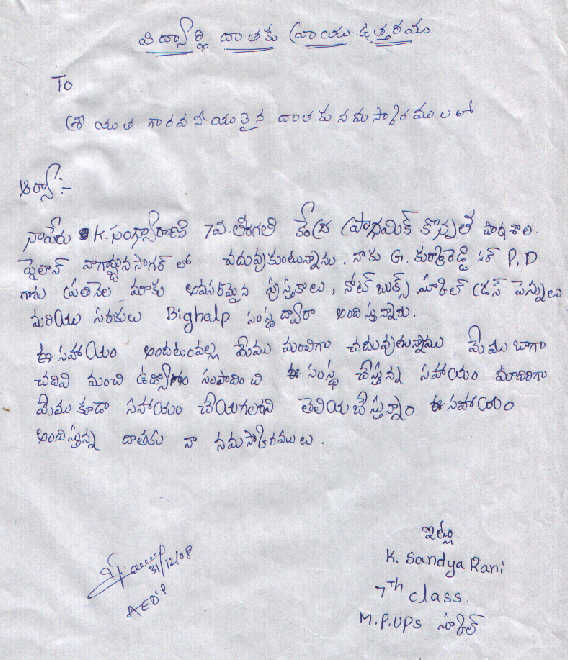 విద్యార్థి దాతకు వ్రాయు ఉత్తరము
To
శ్రీ యుత గౌరవనీయులైన దాతకు నమస్కారములతో
ఆర్యా:-
నాపేరు K. సంధ్యారాణి 7వ తరగతి కేంద్ర ప్రాథమిక పాఠశాల.
నాగార్జునసాగర్ లో చదువుకుంటున్నాను. నాకు G. సర్ P.D
గారు ప్రతినెల మాకు అవసరమైన పుస్తకాలు, నోట్ బుక్స్ డ్రస్ పెన్నులు
మరియు సరుకులు Bighalp సంస్థ ద్వారా అందిస్తున్నారు.
ఈ సహాయం అందటంవల్ల మేము మంచిగా చదువుతున్నాము మేము బాగా
చదివి మంచి ఉద్యోగం సంపాదించి ఈ సంస్థ చేస్తున్న సహాయం మాదిరిగా
మేము కూడా సహాయం చేయగలమని తెలియజేస్తున్నాం ఈ సహాయం
అందిస్తున్న దాతకు నా నమస్కారములు.
31/12/08
AEO
ఇట్లు
K. Sandya Rani
7th class.
M.P.UPS